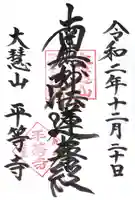 令和二年十二月二十日
南無妙法蓮華経
大慧山　平等寺